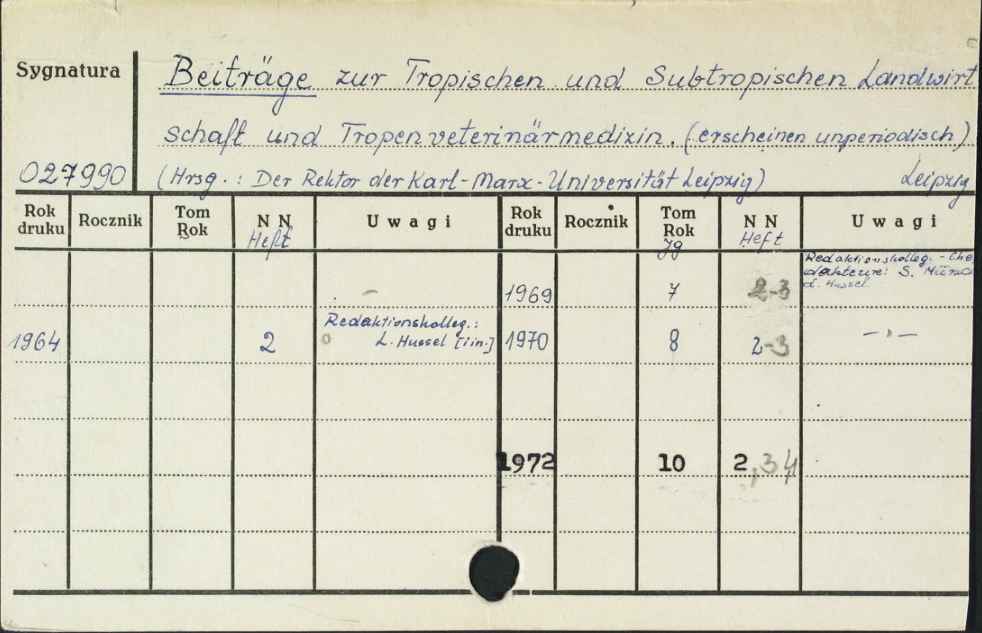 Sygnatura
Beiträge zur Tropischen und Subtropischen Landwirt
schaft und Tropenveterinärmedizin. (erscheinen unperiodisch)
027990
(Hrsg.: Der Rektor der Karl-Marx-Universität Leipzig)
Leipzig
Rok druku Rocznik Tom Rok N N Heft Uwagi Rok druku Rocznik Tom Rok Jg N N Heft Uwagi
Redaktionskolleg. - Che
dakteure: S.
d. Hussel
1969 7 2-3
Redaktionskolleg.:
1964 2 L. Hussel [i in.] 1970 8 2-3 -"-
1972 10 2,3 4